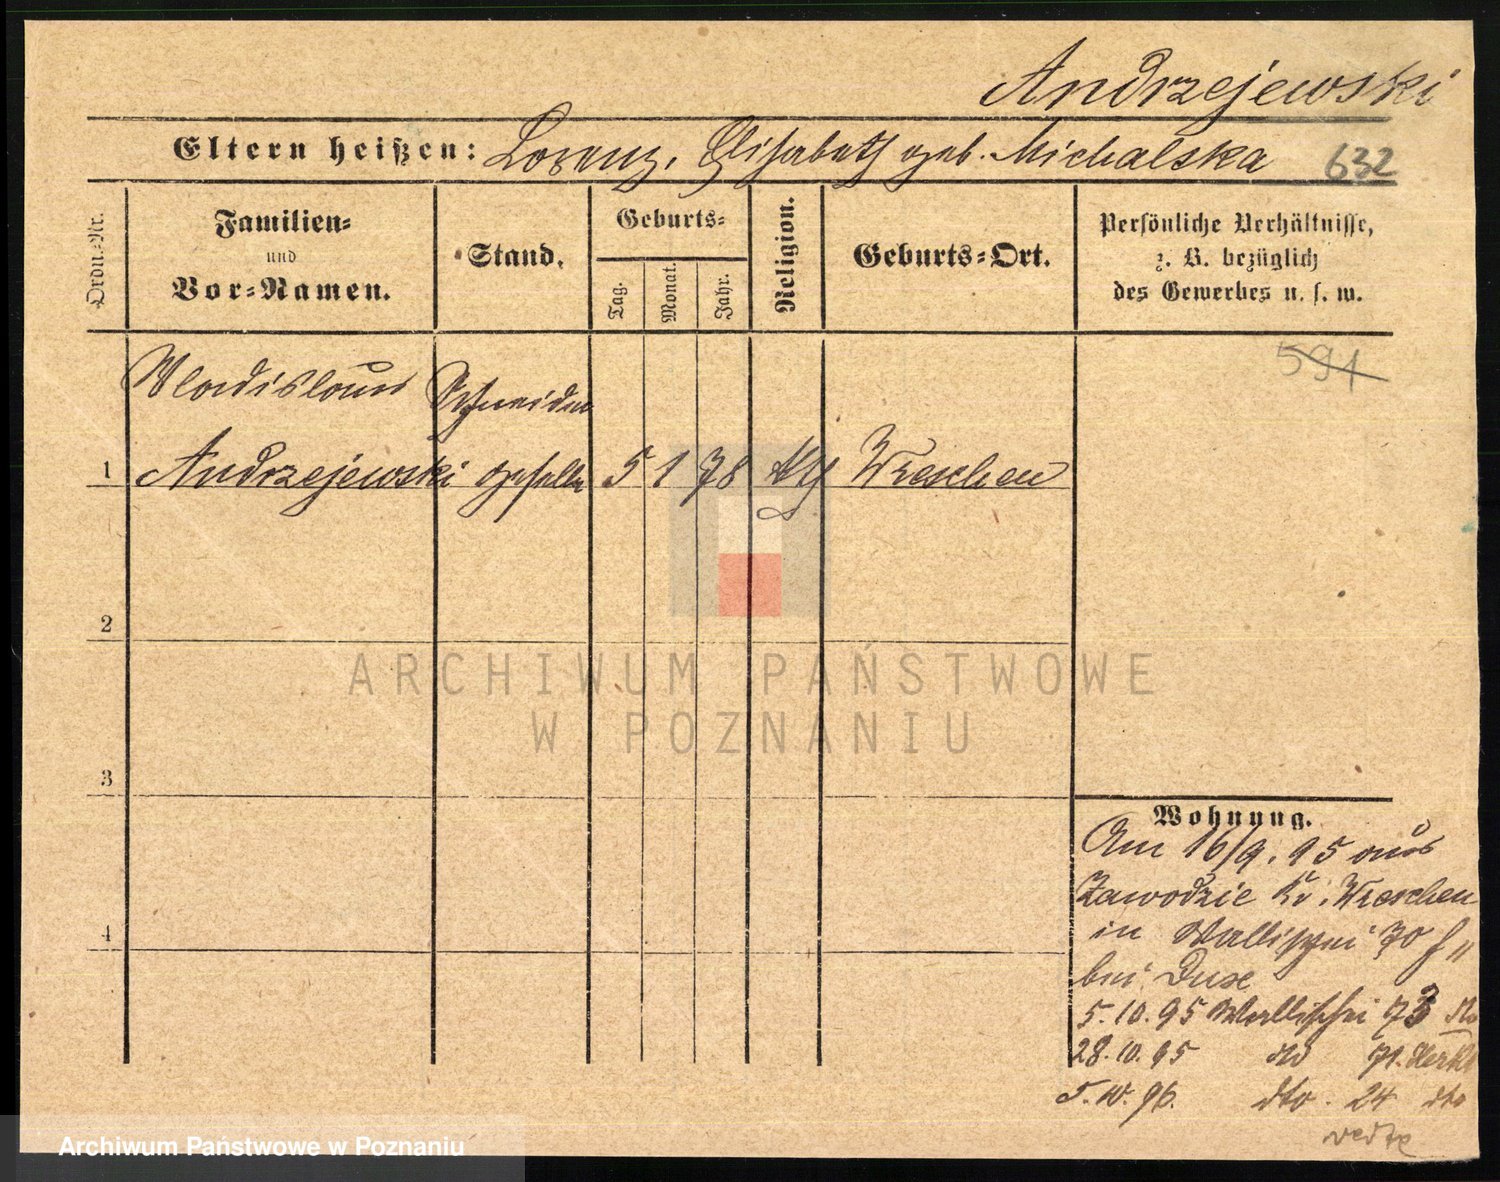 Andrzejewski
Eltern heißen: Lorenz, Elisabeth geb. Michalska 632
Ordn.-Nr.
Familien-
und
Vor-Namen.
Stand.
Geburts-
Tag.
Monat.
Jahr.
Religion.
Geburts-Ort.
Persönliche Verhältnisse,
z. B. bezüglich
des Gewerbes u. s. w.
591
Wladislaus Schneider
1 Andrzejewski geselle 5 1 78 kth Wreschen
2
3
4
Wohnung.
Am 16/9. 95 aus
Zawodzie Kr. Wreschen
in Wallischei 70
bei Duse
5.10.95 Wallischei 73
28.10.95 do 71.
5.10.96. dto. 24 dto
ARCHIWUM PAŃSTWOWE
W POZNANIU
Archiwum Państwowe w Poznaniu